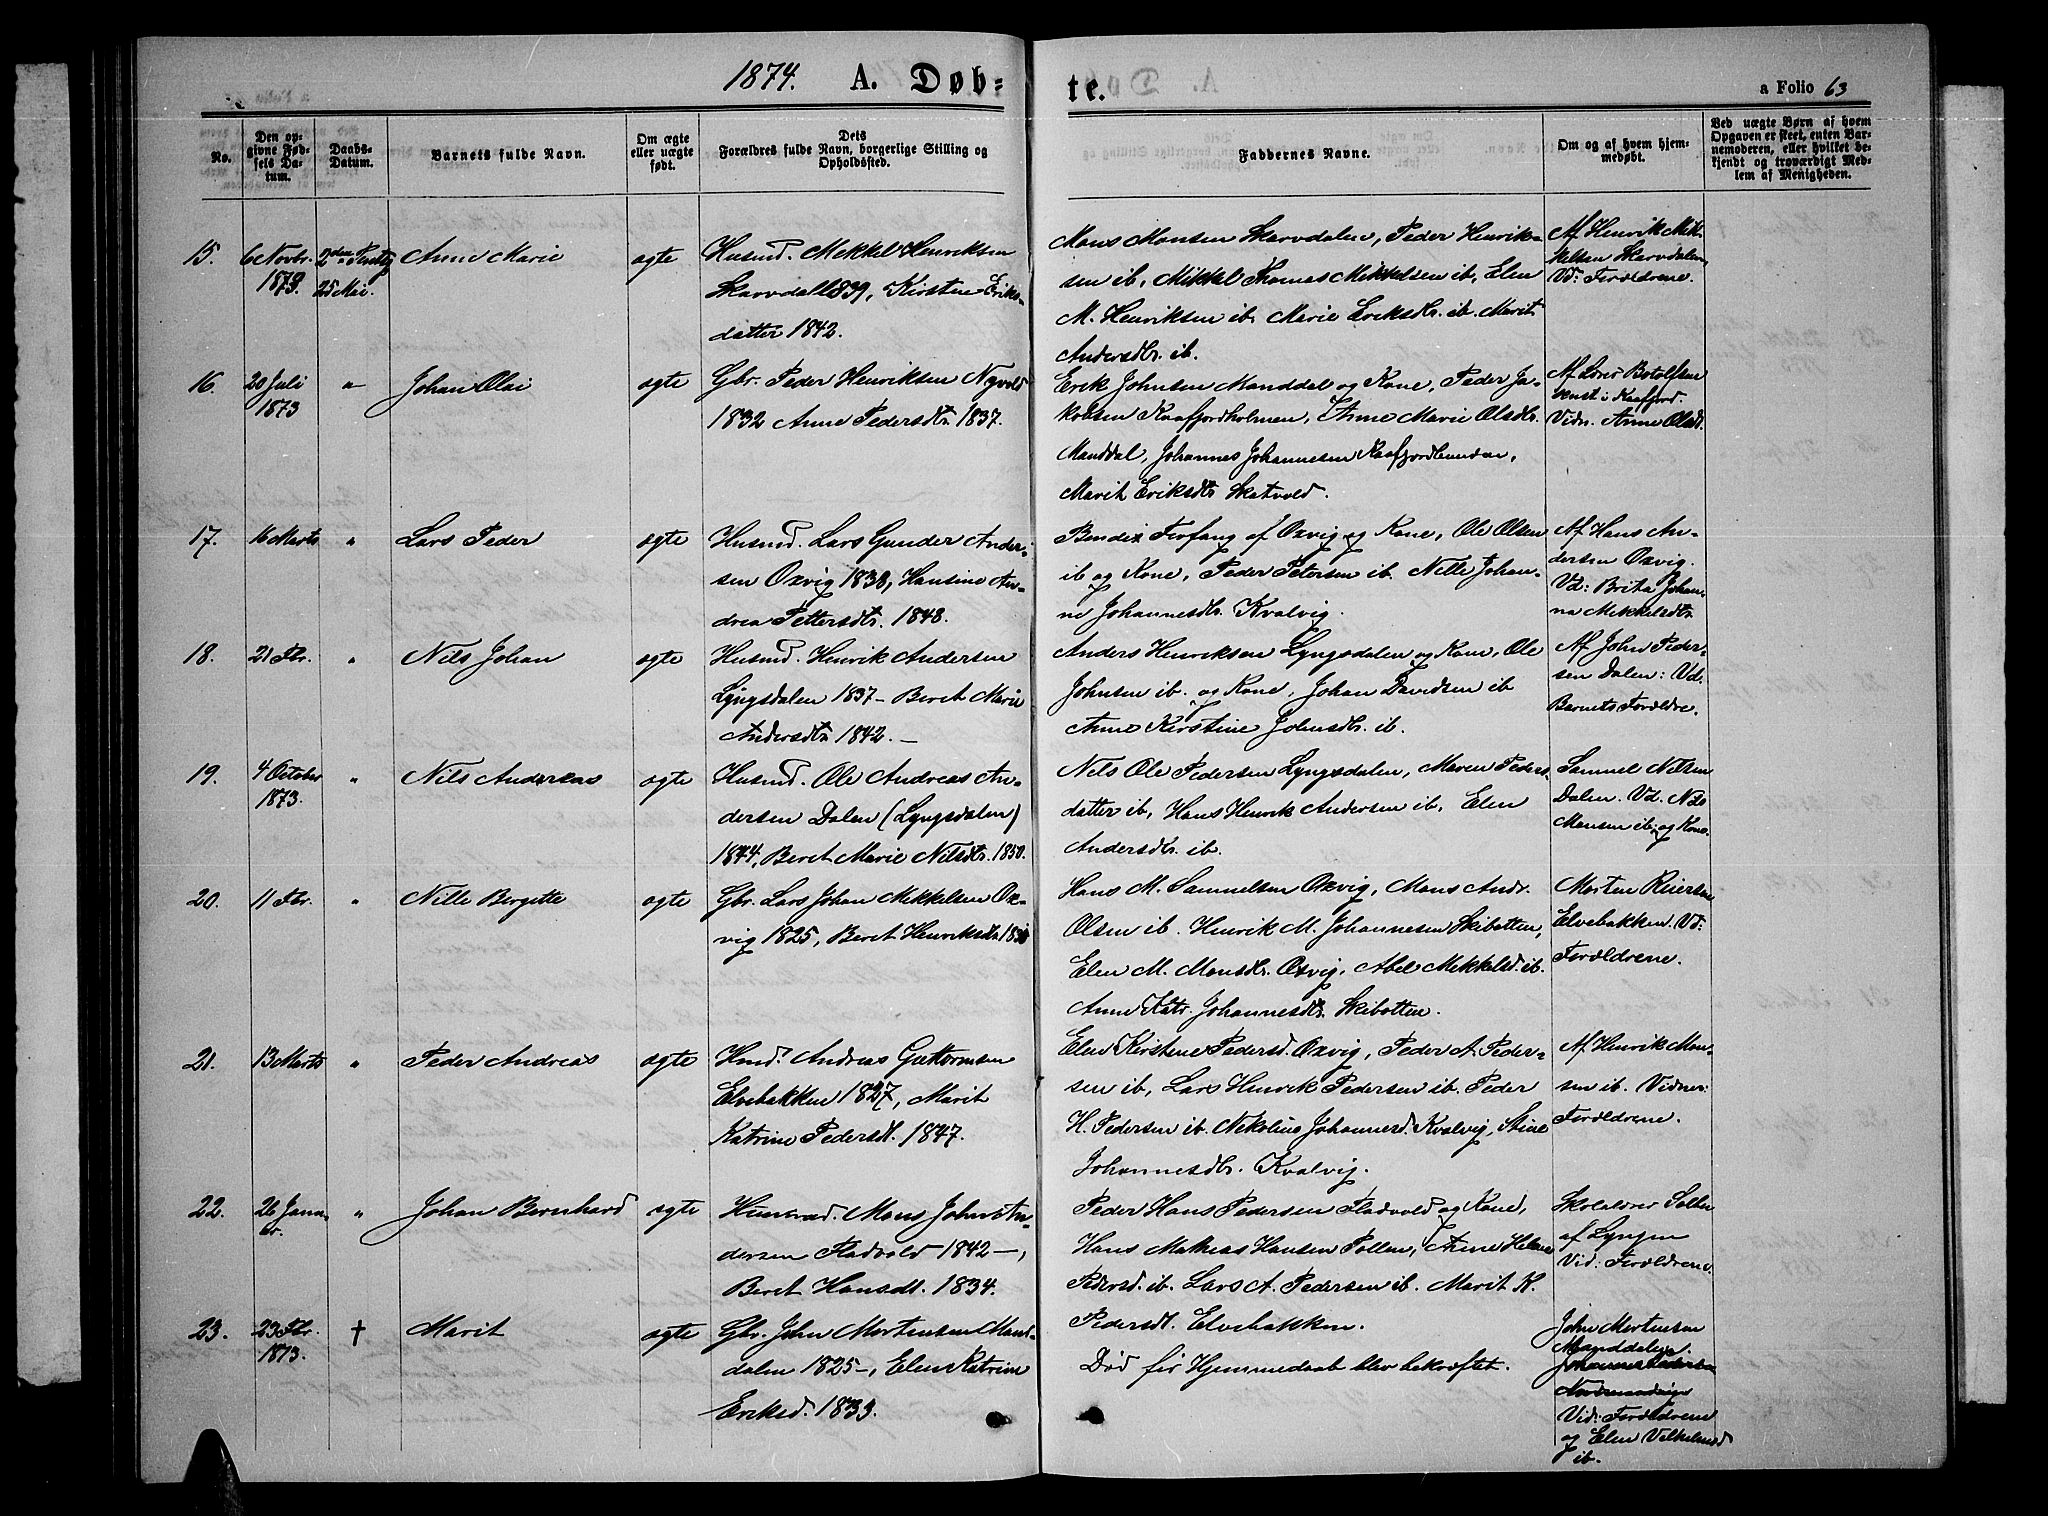 1874. A. Døb=
te.
a Folio 63
No.
Den op=
givne Fød=
sels Da=
tum.
Daabs=
Datum.
Barnets fulde Navn.
Om ægte
eller uægte
født.
Dets
Forældres fulde Navn, borgerlige Stilling og
Opholdssted.
Faddernes Navne.
Om og af hvem hjem=
medøbt.
Ved uægte Børn af hvem
Opgaven er skeet, enten Bar=
nemoderen, eller hvilket be=
kjendt og troværdigt Med=
lem af Menigheden.
15.
6 Novbr.
1873.
2den
25 Mai.
Anne Marie
ægte
Husmd. Mekkel Henriksen
Skarvdal 1839, Kirsten Eriks-
datter 1842.
Mons Monsen Skarvdalen, Peder Henrik-
sen ib, Mikkel Thomas Mikkelsen ib, Elen
M. Henriksen ib. Marie Eriksdtr. ib. Marit
Andersdtr. ib.
Af Henrik Mik-
kelsen Skarvdalen
Vd: Forældrene.
16.
20 Juli
1873
"
Johan Olai
ægte
Gbr. Peder Henriksen Nyvold
1832 Anne Pedersdtr. 1837.
Erik Johnsen Manddal og Kone, Peder Ja-
kobsen Kaafjordholmen, Anne Marie Olsdtr.
Manddal, Johannes Johannesen Kaafjordbunden,
Marit Eriksdtr. Skatvold.
Af Lorer Botolfsen
i Kaafjord.
Vidn. Anne Olsd.
17.
16 Marts
"
Lars Peder
ægte
Husmd. Lars Gunder Ander-
sen Oxvig 1838, Hansine An-
drea Pettersdtr. 1848.
Bendix Forfang af Oxvig og Kone, Ole Olsen
ib og Kone, Peder Petersen ib. Nille Johan-
ne Johannesdtr. Kvalvig.
Af Hans An-
dersen Oxvig.
Vd: Brita Johan-
na Mekkelsdtr.
18.
21 Fbr.
"
Nils Johan
ægte
Husmd. Henrik Andersen
Lyngsdalen 1837 - Beret Marie
Andersdtr 1842. -
Anders Henriksen Lyngsdalen og Kone, Ole
Johnsen ib. og Kone, Johan Davidsen ib
Anne Kirstine Johnsdtr. ib.
Af John Peder-
sen Dalen: Vd:
Barnets Forældre.
19.
4 October
1873.
"
Nils Andreas
ægte
Husmd. Ole Andreas An-
dersen Dalen (Lyngsdalen)
1844, Beret Marie Nilsdtr. 1850.
Nils Ole Pedersen Lyngsdalen, Maren Peders-
datter ib, Hans Henrik Andersen ib, Elen
Andersdtr. ib.
Samuel Nilsen
Dalen. Vd. Nils
Monsen ib. og Kone.
20.
11 Fbr.
"
Nille Bergitte
ægte
Gbr. Lars Johan Mekkelsen Ox-
vig 1825, Beret Henriksdtr.
Hans M. Samuelsen Oxvig, Mons Andr.
Olsen ib. Henrik M. Johannesen Skibotten,
Elen M. Monsdtr. Oxvig, Abel Mekkelsd. ib.
Anne Katr. Johannesdtr. Skibotten.
Morten Reiersen
Elvebakken. Vd:
Forældrene.
21.
13 Marts
"
Peder Andreas
ægte
Hmd. Andreas Guttormsen
Elvebakken 1827, Marit
Katrine Pedersdt. 1847.
Elen Kirstene Pedersd. Oxvig, Peder A. Peder-
sen ib, Lars Henrik Pedersen ib. Peder
H. Pedersen ib. Nikolius Johannesd. Kvalvig, Stine
Johannesdtr. Kvalvig.
Af Henrik Mon-
sen ib. Vidner:
Forældrene.
22.
26 Janu-
ar.
"
Johan Bernhard
ægte
Husmd. Mons John An-
dersen Fladvold 1842 -,
Beret Hansdt. 1834.
Peder Hans Pedersen Fladvold og Kone,
Hans Mathias Hansen Pollen, Anne Helene
Pedersd. ib. Lars A. Pedersen ib. Marit K.
Pedersdt. Elvebakken.
Skolelærer
af Lyngen
Vid: Forældrene.
23.
23 Fbr.
1873.
†
Marit
ægte
Gbr. John Mortensen Mand-
dalen 1825 -, Elen Katrine
Eriksd. 1833.
Død før Hjemmedaab blev bekræftet.
John Mortensen
Manddalen.
Vid: Forældrene
og Elen Vilhelmsd
ib.